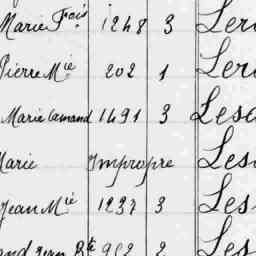 Marie Fois 1248 3 Ler
Pierre Mie 202 1 Ler
Marie Camand 1491 3 Lesc
Marie Impropre Les
Jean Mie 1237 3 Les
Bte 962 2 Les